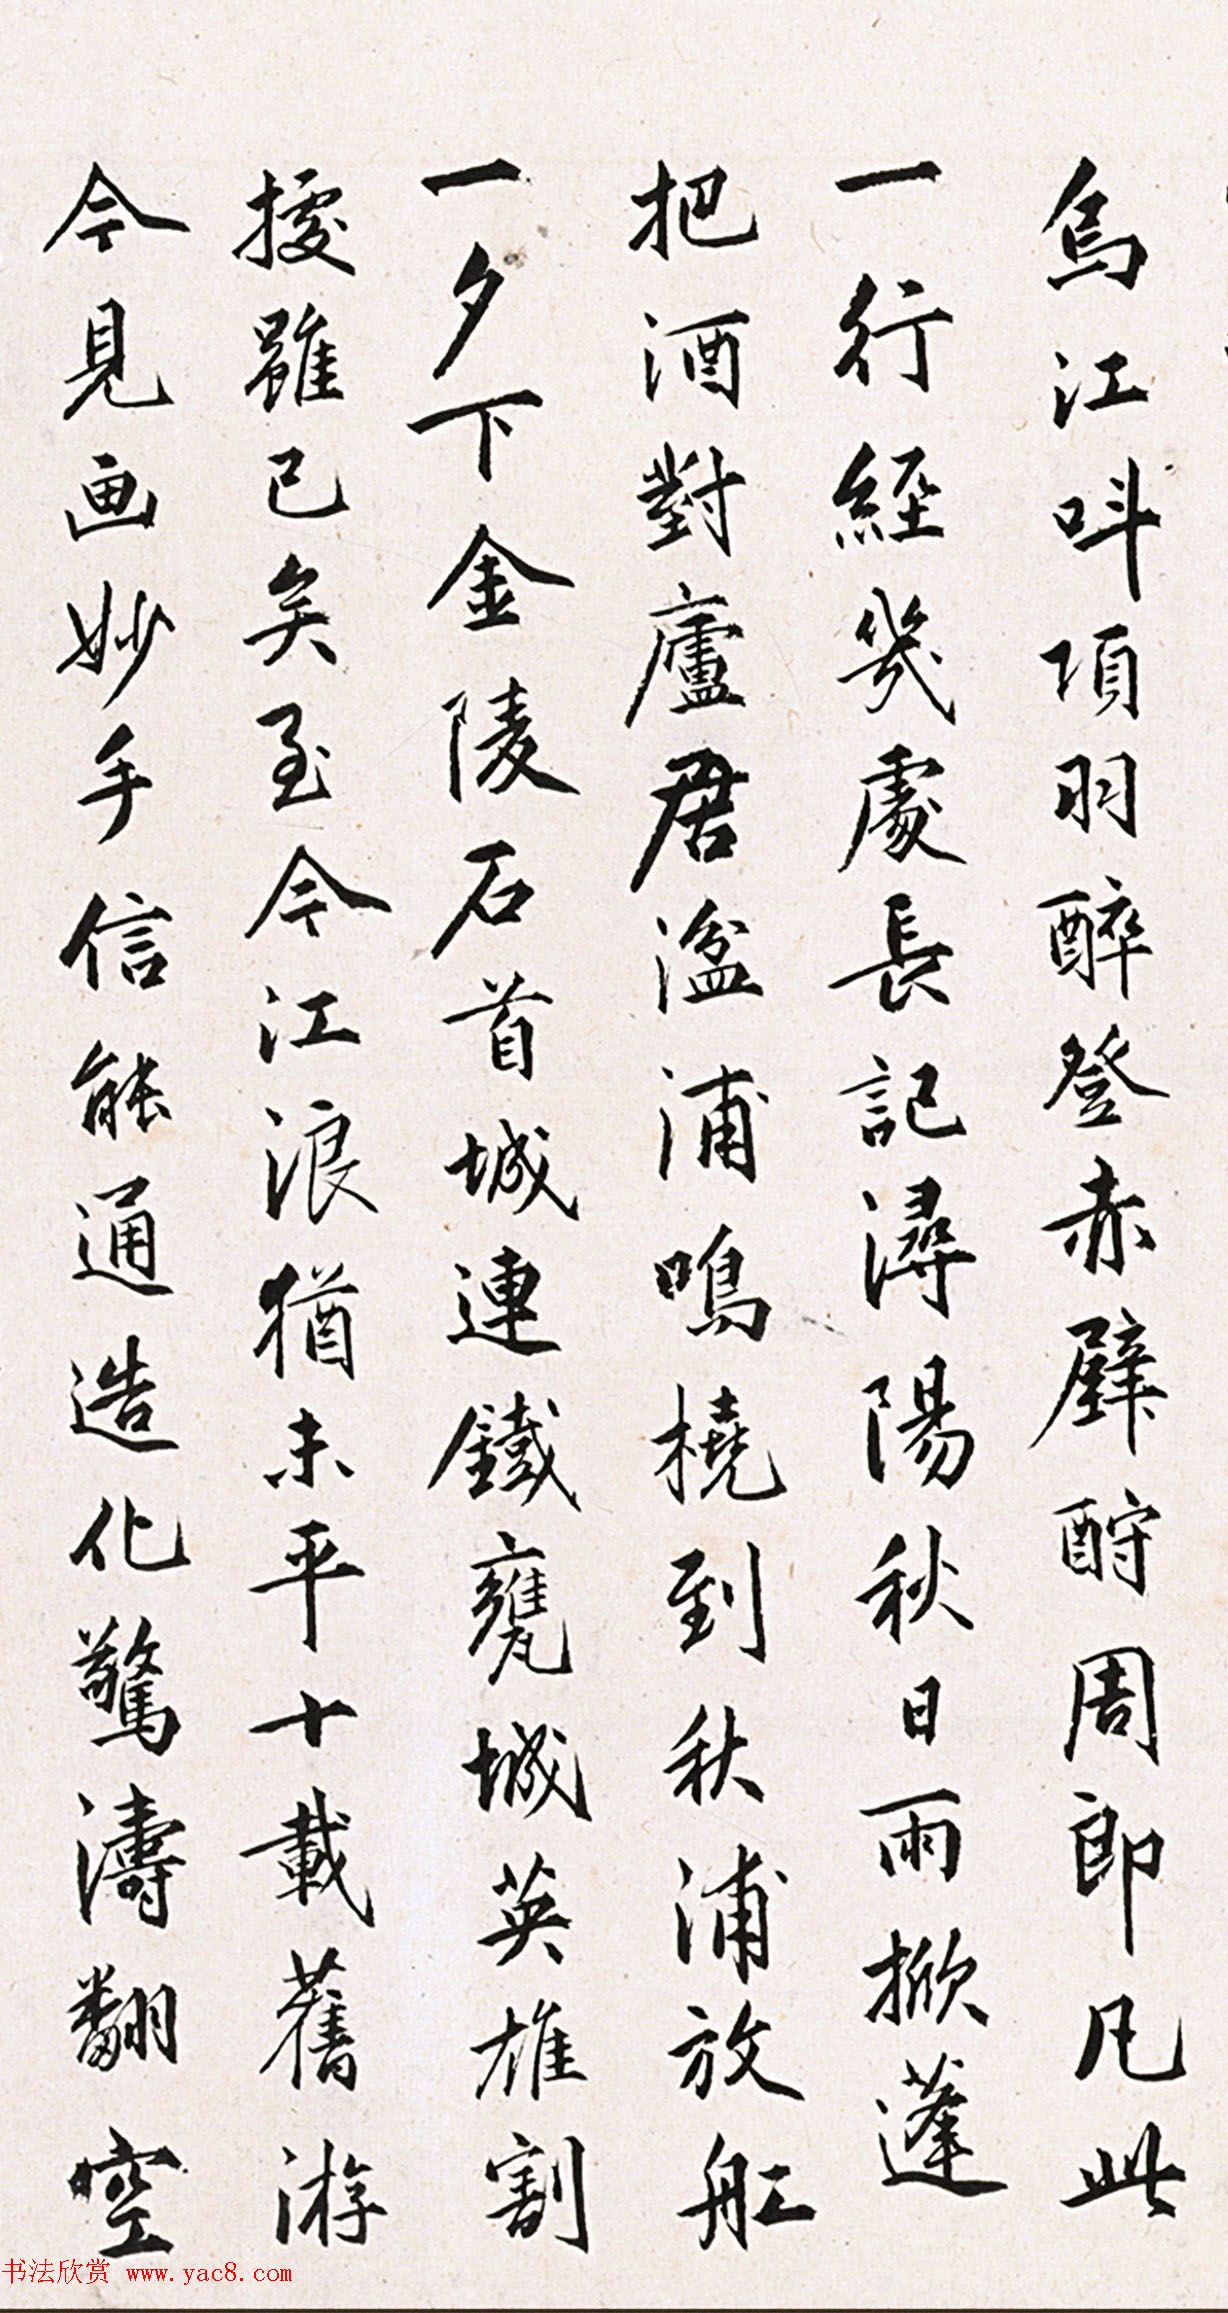 烏江呌項羽醉登赤壁酹周郎凡此
一行經幾處長記潯陽秋日雨掀蓬
把酒對廬君湓浦鳴橈到秋浦放舡
一夕下金陵石首城連鐵甕城英雄割
據雖已矣至今江浪猶未平十載舊游
今見画妙手信能通造化驚濤翻空
书法欣赏 www.yac8.com